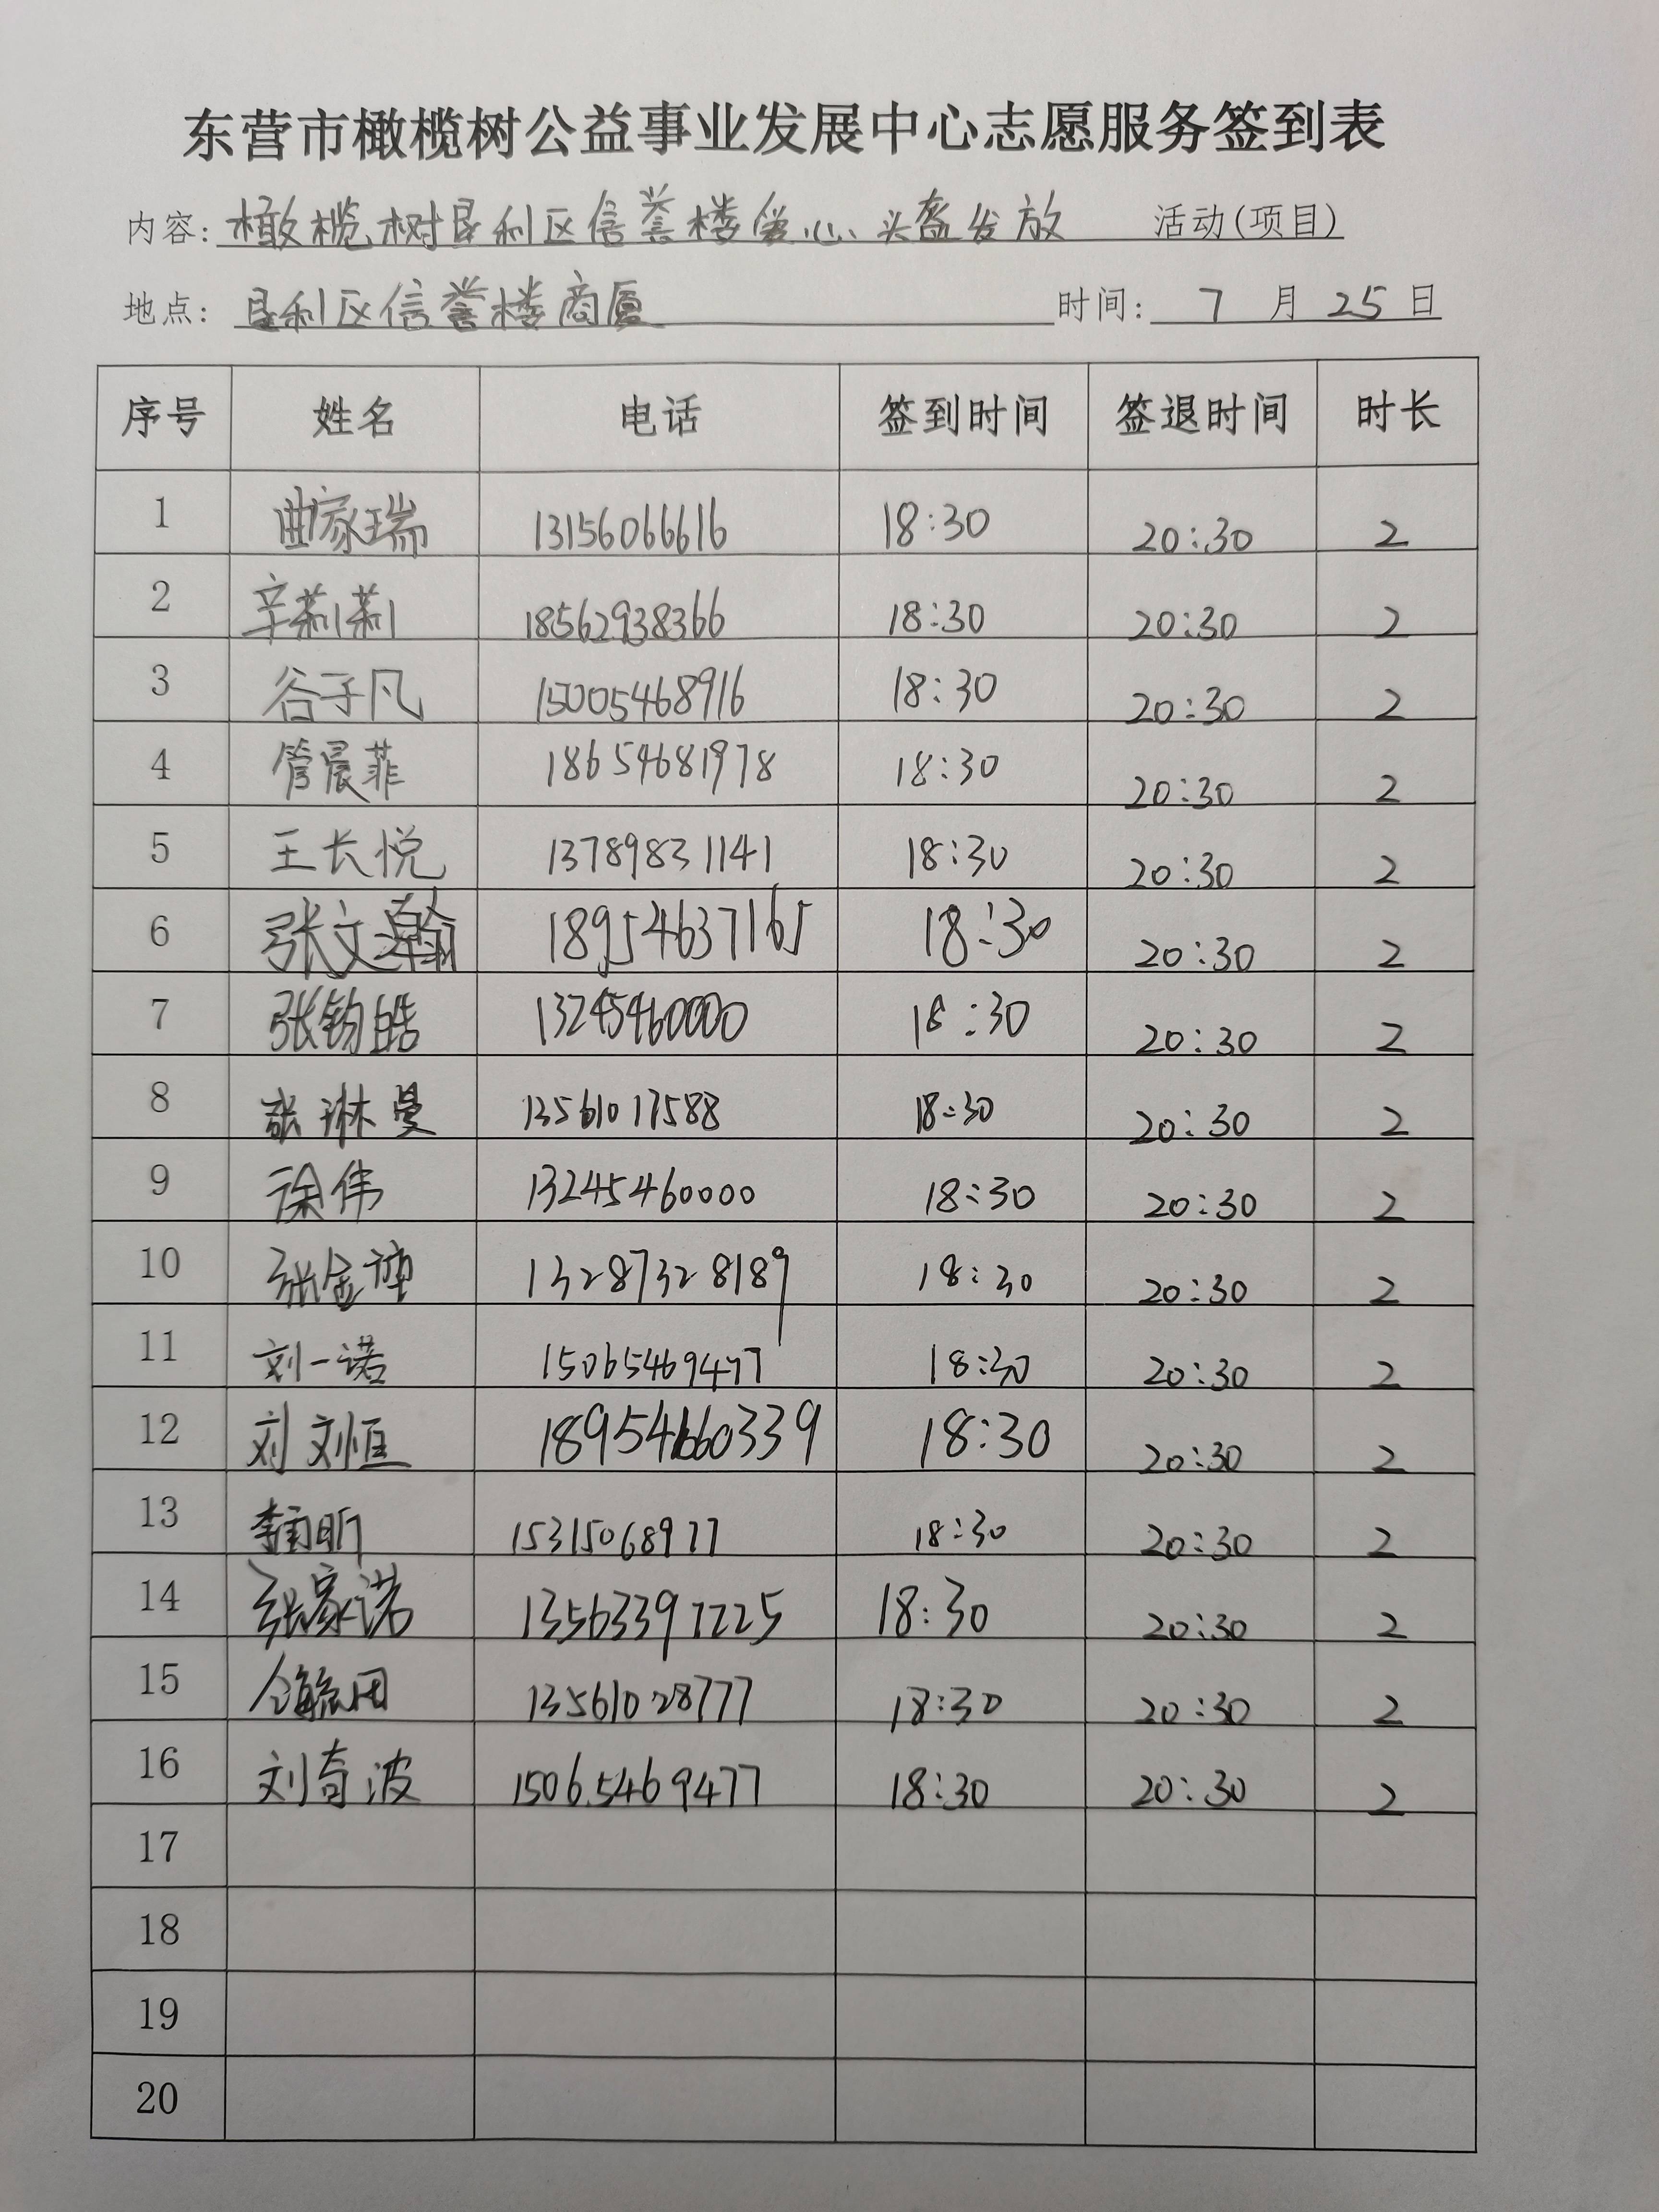 东营市橄榄树公益事业发展中心志愿服务签到表
内容: 橄榄树垦利区信誉楼爱心头盔发放 活动(项目)
地点: 垦利区信誉楼商厦 时间: 7 月 25 日
序号 姓名 电话 签到时间 签退时间 时长
1 曲家瑞 13156066616 18:30 20:30 2
2 辛莉莉 18562938366 18:30 20:30 2
3 谷子凡 15005468916 18:30 20:30 2
4 管晨菲 18654681978 18:30 20:30 2
5 王长悦 13789831141 18:30 20:30 2
6 张文瀚 18954637165 18:30 20:30 2
7 张钧皓 13245460000 18:30 20:30 2
8 张琳曼 13561017588 18:30 20:30 2
9 徐伟 13245460000 18:30 20:30 2
10 13287328189 18:30 20:30 2
11 刘一诺 15065469477 18:30 20:30 2
12 刘刘恒 18954660339 18:30 20:30 2
13 15315068977 18:30 20:30 2
14 张家诺 13563397225 18:30 20:30 2
15 13561028777 18:30 20:30 2
16 刘奇波 15065469477 18:30 20:30 2
17
18
19
20